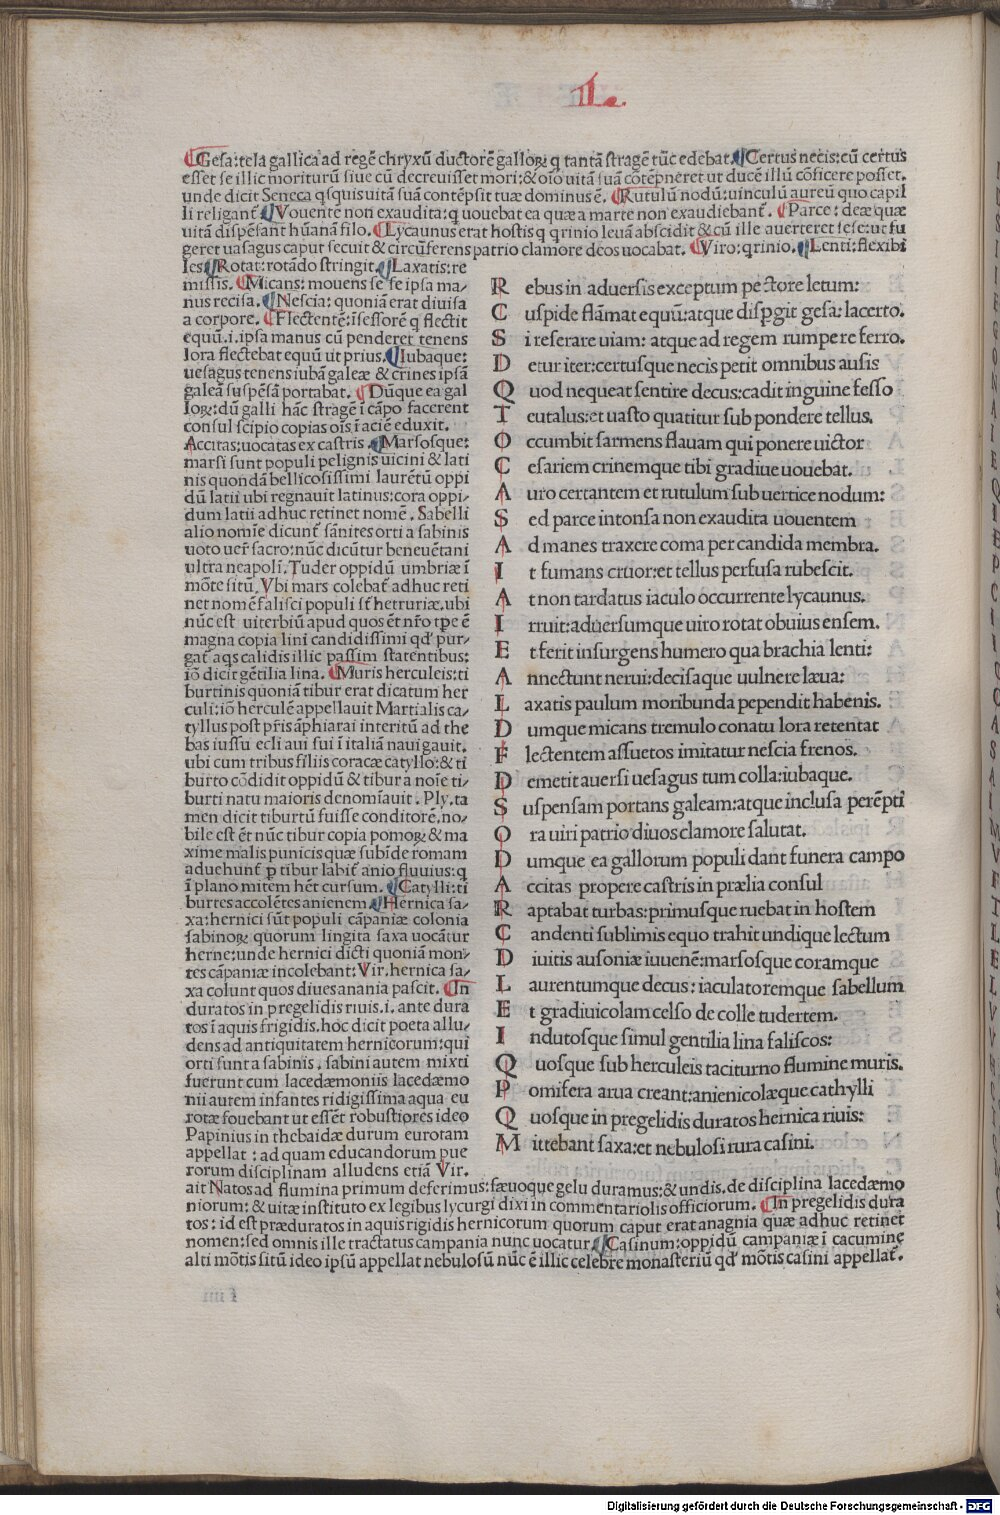 L.
Gesa: tela gallica ad regē chryxū ductorē galloꝝ q tantā stragē tūc edebat. Certus necis: cū certus
esset se illic moriturū siue cū decreuisset mori: & oīo uitā suā cōtēpneret ut ducē illū cōficere posset.
unde dicit Seneca q sqsuis uitā suā contēpsit tuæ dominus ē. Rutulū nodū: uinculū aureū quo capil
li religant᷑ Vouente non exaudita: q uouebat ea quæ a marte non exaudiebant᷑. Parce: deæ quæ
uitā dispēsant hūanā filo. Lycaunus erat hostis q qrinio leuā abscidit & cū ille auerteret sese: ut fu
geret uasagus caput secuit & circūferens patrio clamore deos uocabat. Viro: qrinio. Lenti: flexibi
les Rotat: rotādo stringit. Laxatis: re
missis. Micans: mouens se se ipsa ma/
nus recisa. Nescia: quoniā erat diuisa
a corpore. Flectentē: īsessorē q flectit
equū. i. ipsa manus cū penderet tenens
lora flectebat equū ut prius. Iubaque:
uesagus tenens iubā galeæ & crines ipsā
galeā suspēsā portabat. Dūque ea gal
loꝝ: dū galli hāc stragē ī cāpo facerent
consul scipio copias oīs ī aciē eduxit.
Accitas: uocatas ex castris. Marsosque:
marsi sunt populi pelignis uicini & lati
nis quondā bellicosissimi laurētū oppi
dū latii ubi regnauit latinus: cora oppi/
dum latii adhuc retinet nomē. Sabelli
alio nomīe dicunt᷑ sānites orti a sabinis
uoto uer̄ sacro: nūc dicūtur beneuētani
ultra neapolī. Tuder oppidū umbriæ ī
mōte sitū. Vbi mars colebat᷑ adhuc reti
net nomē falisci populi st̄ hetruriæ. ubi
nūc est uiterbiū apud quos ēt nr̄o tpe ē
magna copia lini candidissimi qd' pur/
gat᷑ aqs calidis illic passim statentibus:
iō dicit gētilia lina. Muris herculeis: ti
burtinis quoniā tibur erat dicatum her
culi: iō herculē appellauit Martialis ca/
tyllus post pr̄is āphiarai interitū ad the
bas iussu ecli aui sui ī italiā nauigauit.
ubi cum tribus filiis coracæ catyllo: & ti
burto cōdidit oppidū & tibur a noīe ti/
burti natu maioris denomīauit. Ply. ta
men dicit tiburtū fuisse conditorē, no/
bile est ēt nūc tibur copia pomoꝝ & ma
xime malis punicis quæ subīde romam
aduehunt᷑ p tibur labit᷑ anio fluuius: q
ī plano mitem hēt cursum. Catylli: ti
burtes accolētes anienem Hernica sa/
xa: hernici sūt populi cāpaniæ colonia
sabinoꝝ quorum lingita saxa uocātur
herne: unde hernici dicti quoniā mon/
tes cāpaniæ incolebant: Vir. hernica sa/
xa colunt quos diues anania pascit. In
duratos in pregelidis riuis. i. ante dura
tos ī aquis frigidis. hoc dicit poeta allu/
dens ad antiquitatem hernicorum: qui
orti sunt a sabinis. sabini autem mixti
fuerunt cum lacedæmoniis lacedæmo
nii autem infantes ridigissima aqua eu
rotæ fouebant ut essēt robustiores ideo
Papinius in thebaidæ durum eurotam
appellat: ad quam educandorum pue
rorum disciplinam alludens etiā Vir.
ait Natos ad flumina primum deferimus: sæuoque gelu duramus: & undis. de disciplina lacedæmo
niorum: & uitæ instituto ex legibus lycurgi dixi in commentariolis officiorum. In pregelidis dura
tos: id est præduratos in aquis rigidis hernicorum quorum caput erat anagnia quæ adhuc retinet
nomen: sed omnis ille tractatus campania nunc uocatur. Casinum: oppidū campaniæ ī cacumine
alti mōtis sitū ideo ipsū appellat nebulosū nūc ē illic celebre monasteriū qd' mōtis casini appellat᷑.
R ebus in aduersis exceptum pectore letum:
C uspide flāmat equū: atque disp̱git gesa: lacerto.
S i referare uiam: atque ad regem rumpere ferro.
D etur iter: certusque necis petit omnibus ausis
Q uod nequeat sentire decus: cadit inguine fesso
T eutalus: et uasto quatitur sub pondere tellus.
O ccumbit sarmens flauam qui ponere uictor
C esariem crinemque tibi gradiue uouebat.
A uro certantem et rutulum sub uertice nodum:
S ed parce intonsa non exaudita uouentem
A d manes traxere coma per candida membra.
I t fumans cruor: et tellus perfusa rubescit.
A t non tardatus iaculo occurrente lycaunus.
I rruit: aduersumque uiro rotat obuius ensem.
E t ferit insurgens humero qua brachia lenti:
A nnectunt nerui: decisaque uulnere læua:
L axatis paulum moribunda pependit habenis.
D umque micans tremulo conatu lora retentat
F lectentem assuetos imitatur nescia frenos.
D emetit auersi uesagus tum colla: iubaque.
S uspensam portans galeam: atque inclusa perēpti
O ra uiri patrio diuos clamore salutat.
D umque ea gallorum populi dant funera campo
A ccitas propere castris in prælia consul
R aptabat turbas: primusque ruebat in hostem
C andenti sublimis equo trahit undique lectum
D iuitis ausoniæ iuuenē: marsosque coramque
L aurentumque decus: iaculatoremque sabellum
E t gradiuicolam celso de colle tudertem.
I ndutosque simul gentilia lina faliscos:
Q uosque sub herculeis taciturno flumine muris.
P omifera arua creant: anienicolæque cathylli
Q uosque in pregelidis duratos hernica riuis:
M ittebant saxa: et nebulosi rura casini.
Digitalisierung gefördert durch die Deutsche Forschungsgemeinschaft - DFG